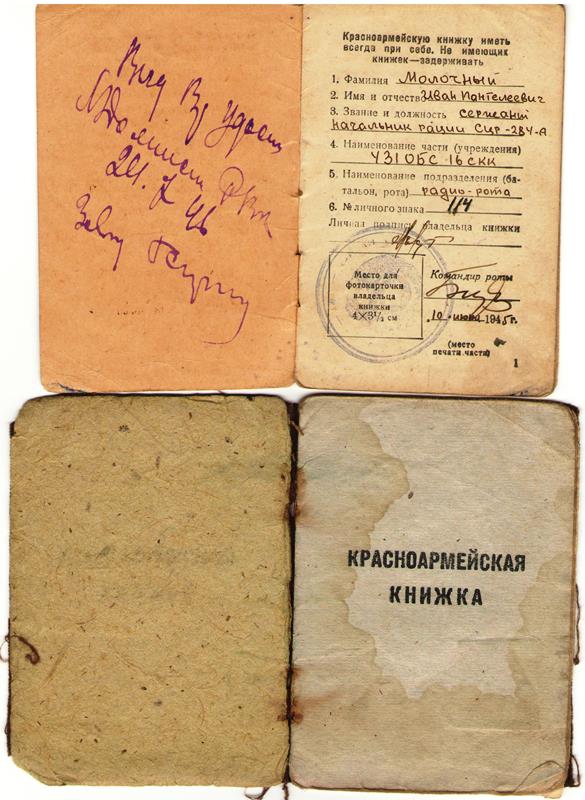 24. X 46
Красноармейскую книжку иметь
всегда при себе. Не имеющих
книжек—задерживать
1. Фамилия Молочный
2. Имя и отчество Иван Пантелеевич
3. Звание и должность сержант
начальник рации Сцр-284-А
4. Наименование части (учреждения)
431 ОБС 16 СКК
5. Наименование подразделения (ба-
тальон, рота) радио-рота
6. № личного знака 114
Личная подпись владельца книжки
Место для
фотокарточки
владельца
книжки
4×3½ см
Командир роты
10 июня 1945г.
(место
печати части)
1
КРАСНОАРМЕЙСКАЯ
КНИЖКА